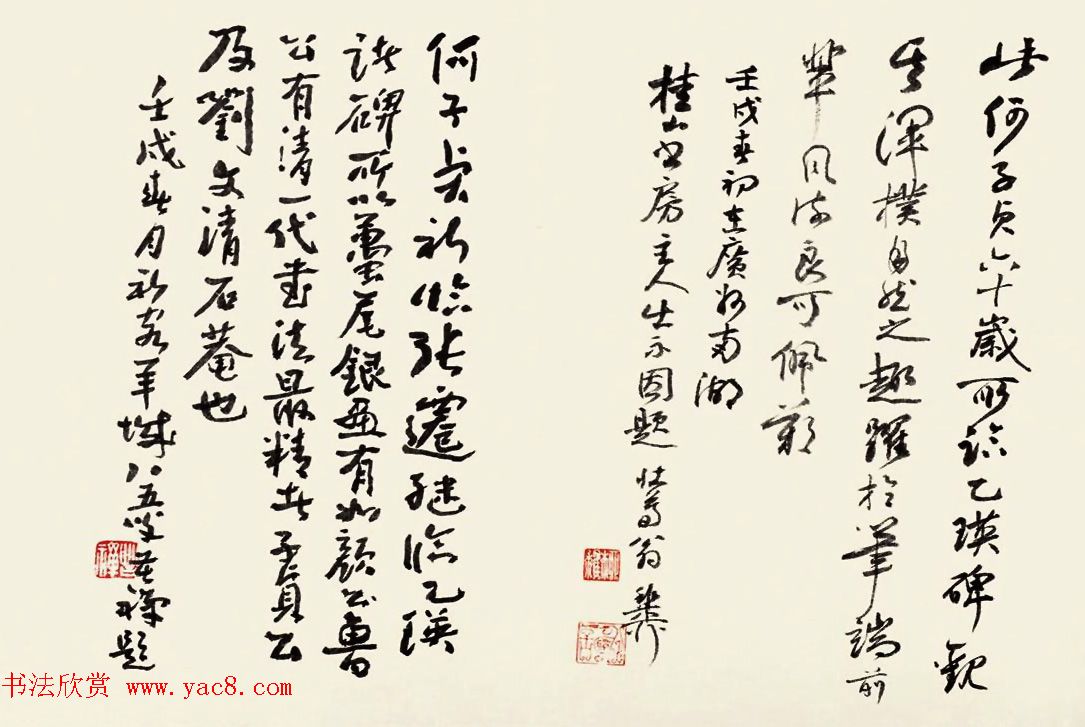 此何子贞六十岁所临乙瑛碑观
其浑朴自然之趣跃于笔端前
辈风流良可佩
壬戌春初在廣州南湖
桂山书房主人出示因题
翁
何子贞初临张遷继临乙瑛
诸碑所以蠆尾银画有如颜公鲁
公有清一代书法最精者子貞公
及劉文清石菴也
壬戌春月初客羊城八五叟苦禅题
书法欣赏 www.yac8.com